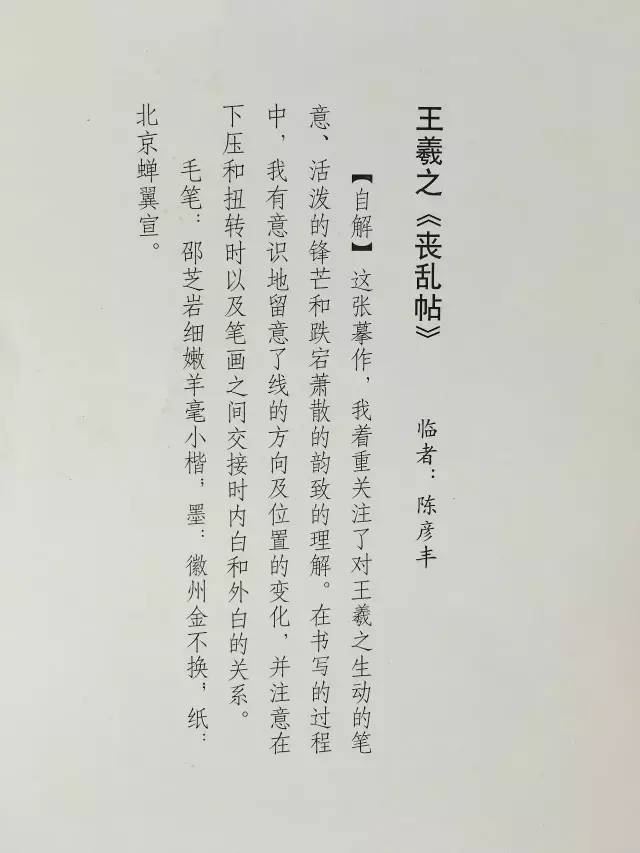 王羲之《丧乱帖》 临者：陈彦丰
【自解】这张摹作，我着重关注了对王羲之生动的笔
意、活泼的锋芒和跌宕萧散的韵致的理解。在书写的过程
中，我有意识地留意了线的方向及位置的变化，并注意在
下压和扭转时以及笔画之间交接时内白和外白的关系。
毛笔：邵芝岩细嫩羊毫小楷，墨：徽州金不换，纸：
北京蝉翼宣。